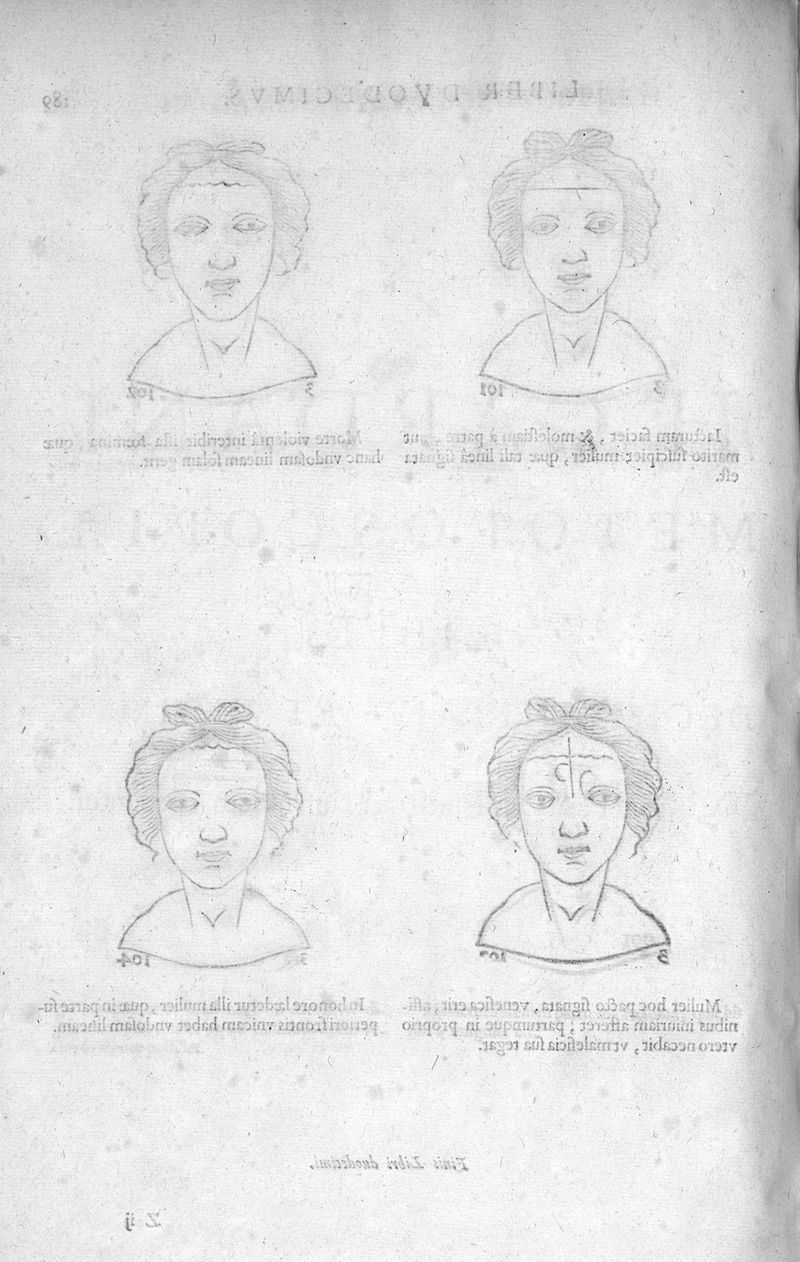 LIBER DVODECIMVS. 189
3 101
3 102
Iacturam faciet, & molestiam à patre, aut
marito suscipiet mulier, quæ tali lineâ signata
est.
Morte violentâ interibit ista fœmina, quæ
hanc vndosam lineam solam gerit.
3 103
3 104
Mulier hoc pacto signata, venefica erit, affi-
nibus iniuriam afferet, partumque in proprio
vtero necabit, vt maleficia sua tegat.
In honore lædetur illa mulier, quæ in parte su-
periori frontis vnicam habet vndosam lineam.
Finis Libri duodecimi.
Z ij